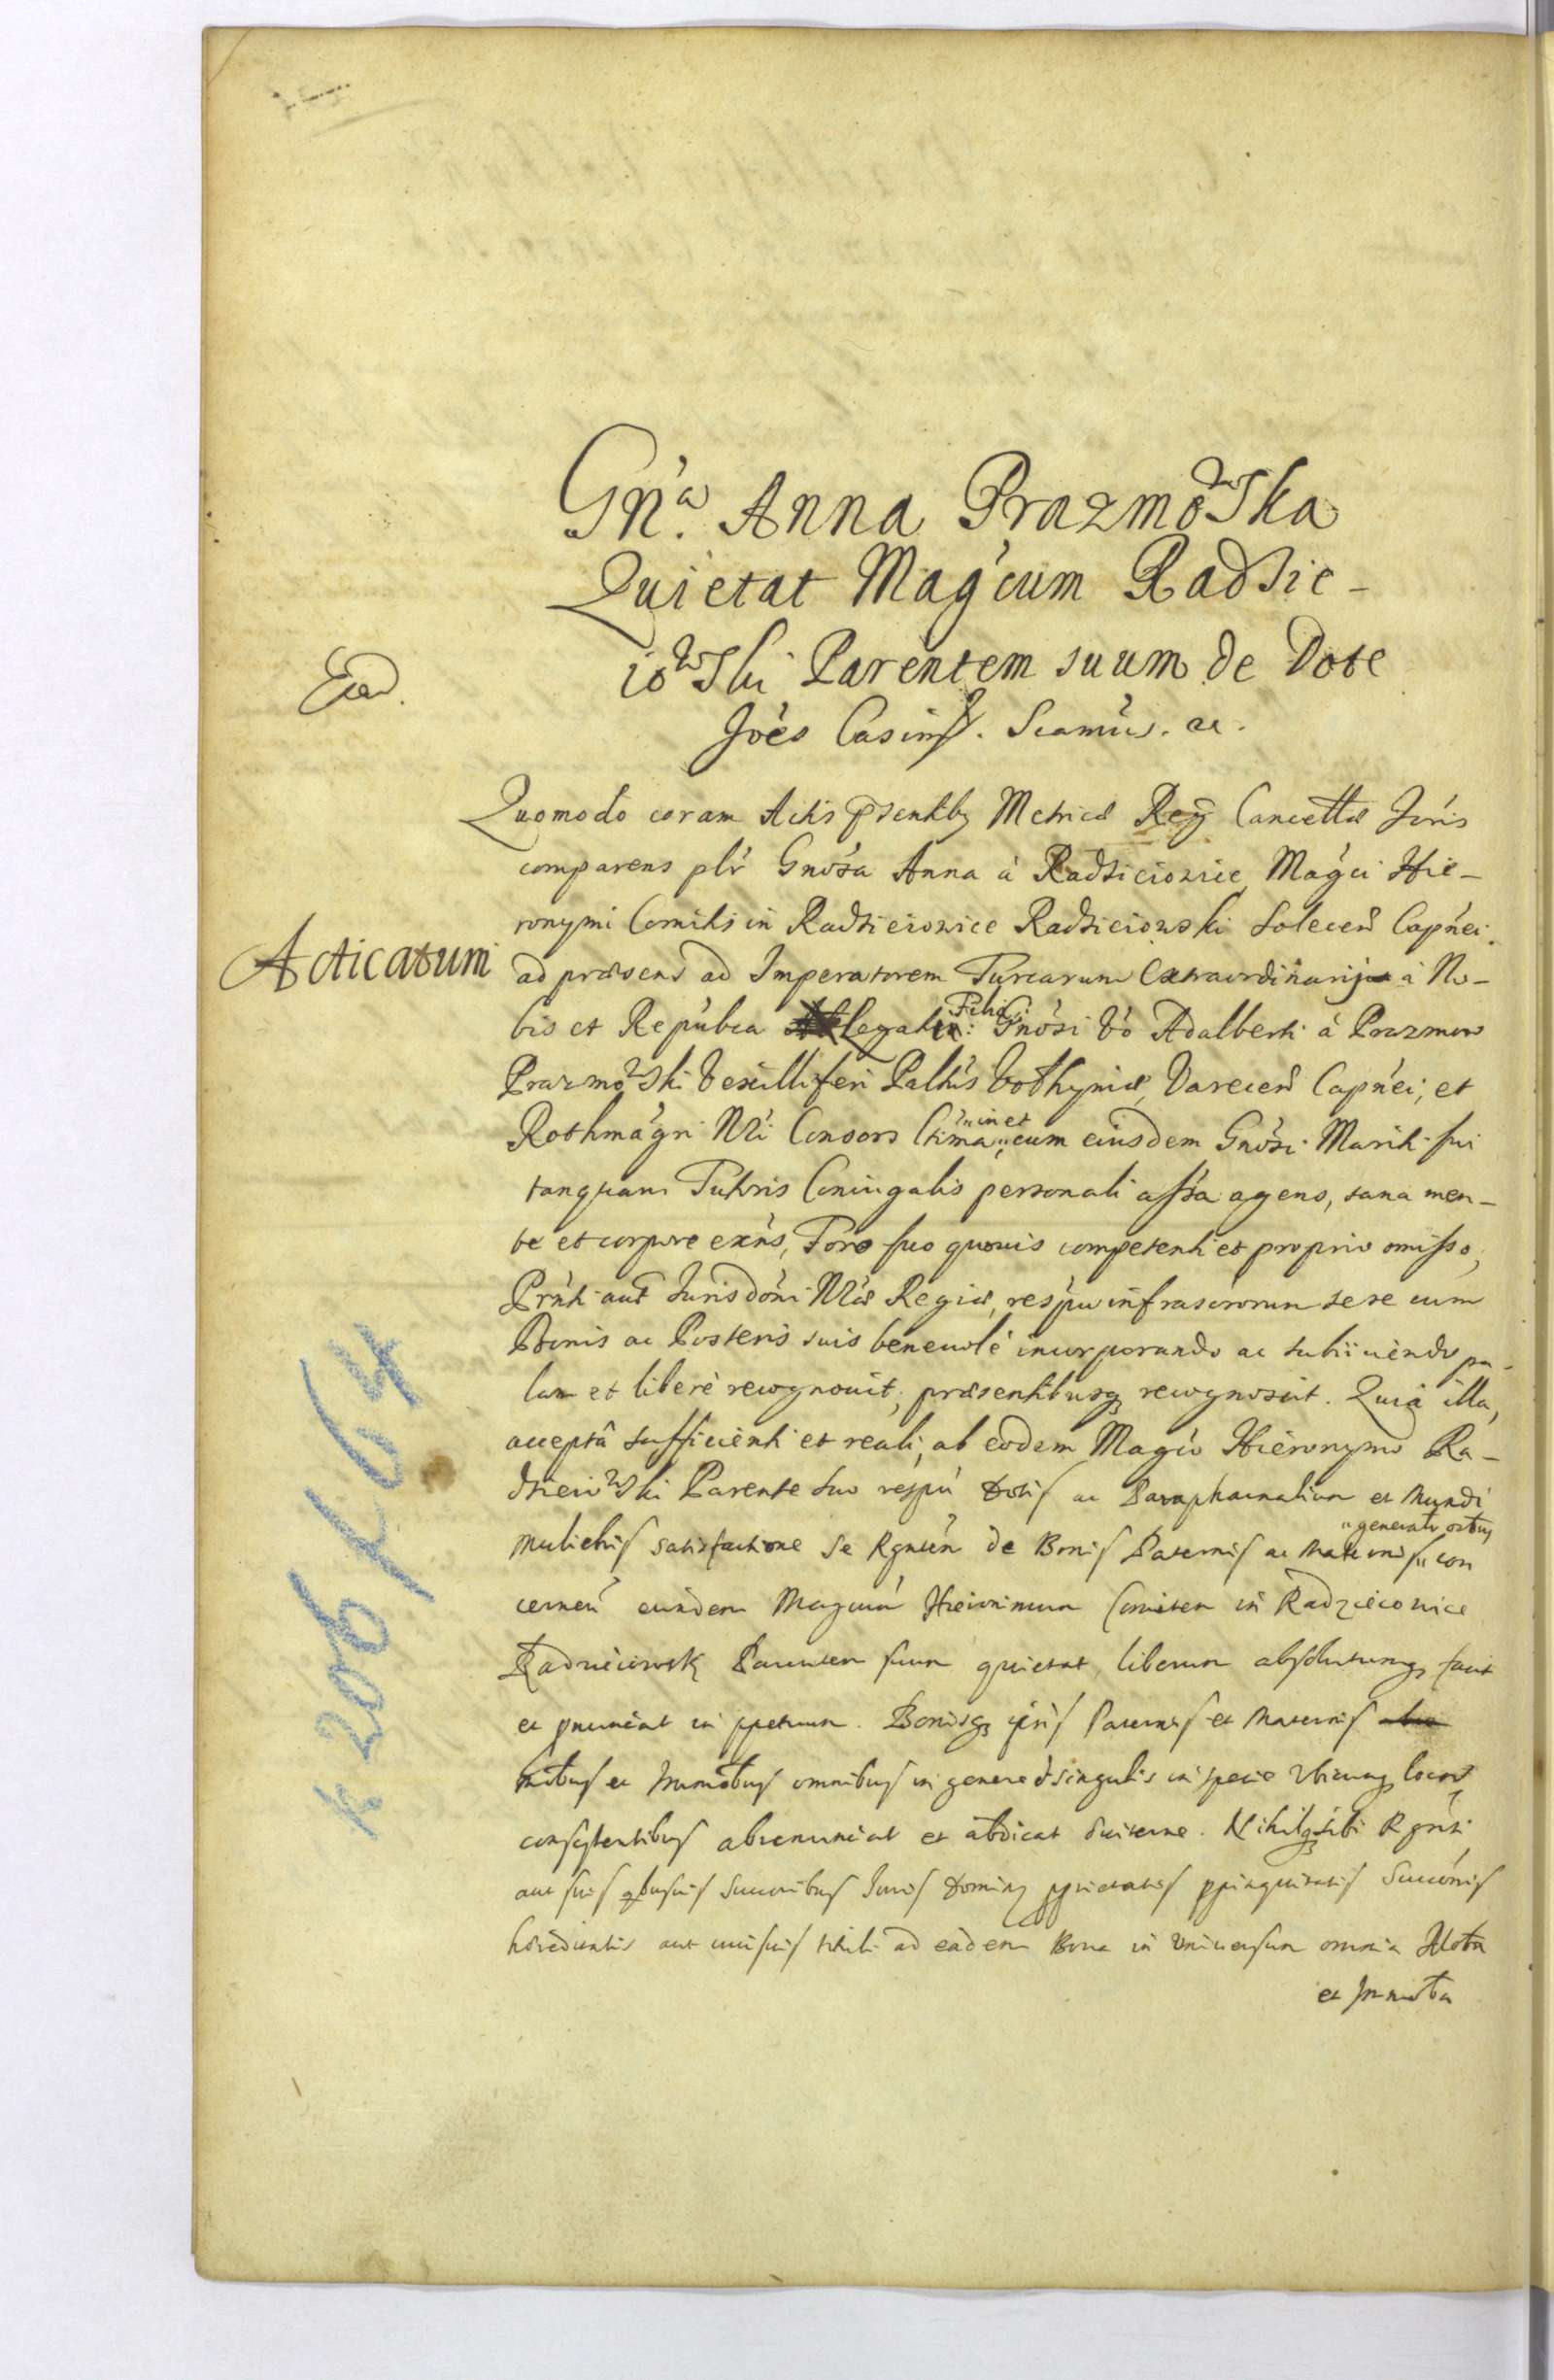 Gn̄a Anna Prazmowska
Quietat Mag̃cum Radzie-
iowski Parentem suum de Dote
Joẽs Casim̃. Seamũs. ac.
Ead.
Quomodo coram Actis p̃sentibq̃ Metrices Reg̃ Cancellæ Juris
comparens plr̃ Gnõsa Anna à Radzieiowice Mag̃ci Hie-
ronymi Comitis in Radzieiowice Radzieiowski Solecen̄ Capñei
Acticatum
ad præsens ad Imperatorem Turcarum Extraordinarij à No-
bis et Repũbca Legati Filia: Gnõsi Vo Adalberti à Prazmow
Prazmowski Vexilliferi Paltũs Volhyniæ, Varecen̄ Capñei, et
Rothmãgri Nr̃i Consors Ctima, "in et" cum eiusdem Gnõsi Mariti sui
tanquam Tutoris Coniugalis personali assã agens, sana men-
te et corpore exñs, Foro suo quouis competenti et proprio omisso,
Prñti aut̃ Jurisdõni Nr̃æ Regiæ, respũ infrascrorum sese cum
Bonis ac Posteris suis beneuolè incorporando ac subiiciendo pa-
lam et liberè recognouit, præsentibusq̃ recognoscit. Quia illa,
acceptâ sufficienti et reali, ab eodem Magc̃o Hieronymo Ra-
dzieiowski Parente suo respũ Dotis ac Paraphernalium et Mundi
muliebris satisfactione se Rgñtem de Bonis Paternis ac Maternis "generalr̃ ortus" con
cernen̄ eundem Magcum Hieronimum Comitem in Radzieiowice
Radzieiowski Parentem suum quietat, liberum absolutumq̃ facit
et pnunciat in ppetuum. Bonisq̃ ipsis Paternis et Maternis
mobus et Immobus omnibus in genere et singulis in specie vbicunq̃ locor̃
consistentibus abrenunciat et abdicat sese. Nihilq̃ sibi Rgnti
aut suis quibusuis Succoribus Juris Dominij pprietatis ppinquitatis Succonis
hæreditatis aut cuiusuis tituli ad eadem Bona in Vniuersum omnia Mota
et Immota
K 206 k 64